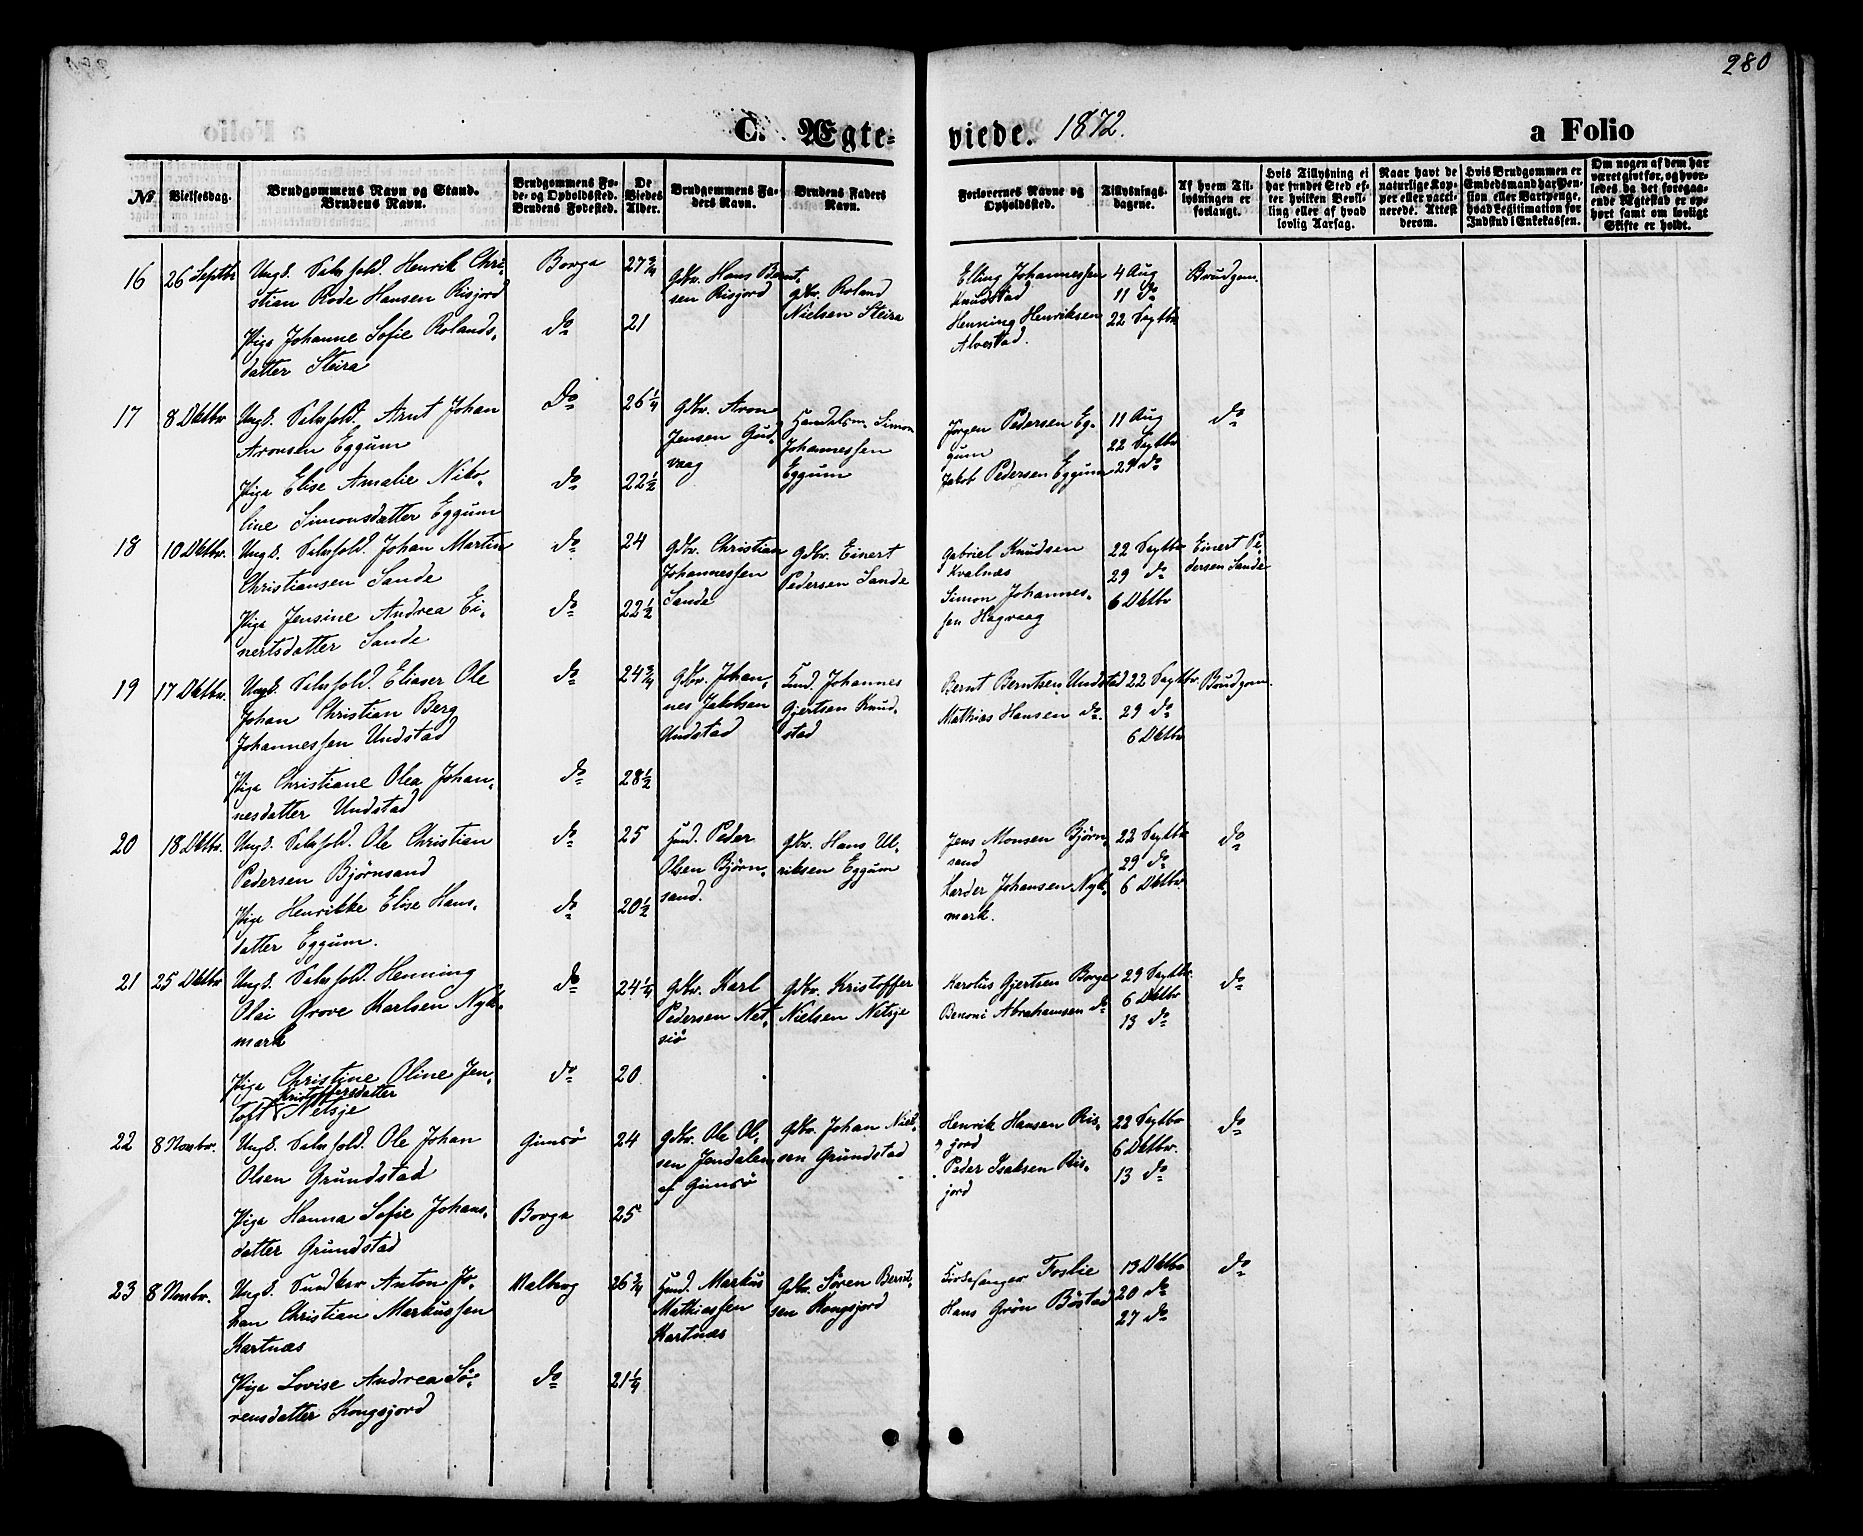 280
C. Ægte-
viede. 1872.
a Folio
No
Vielsesdag.
Brudgommens Navn og Stand.
Brudens Navn.
Brudgommens Fø-
de- og Opholdssted.
Brudens Fødested.
De
Viedes
Alder.
Brudgommens Fa-
ders Navn.
Brudens Faders
Navn.
Forlovernes Navne og
Opholdssted.
Tillysnings-
dagene.
Af hvem Til-
lysningen er
forlangt.
Hvis Tillysning ei
har fundet Sted ef-
ter hvilken Bevil-
ling eller af hvad
lovlig Aarsag.
Naar havt de
naturlige Kop-
per eller vacci-
nerede. Attest
derom.
Hvis Brudgommen er
Embedsmand har Pen-
sion eller Vartpenge,
hvad Legitimation for
Indskud i Enkekassen.
Om nogen af dem har
været gift før, og hvor-
ledes, da det foregaa-
ende Ægteskab er op-
hørt samt om lovligt
Skifte er holdt.
16 26 Septbr Ungk. Henrik Chri-
stian Rode Hansen Risjord
Pige Johanne Sofie Rolands-
datter Steira
Borge 27 3/4
do 21
Gbr. Hans Bernt-
sen Risjord
Gbr. Roland
Nielsen Steira
Elling Johannessen
Knudstad
Henning Henriksen
Alvestad.
4 Aug
11 do
22 Septbr
Brudgom.
17 8 Oktbr Ungk. Arnt Johan
Aronsen Eggum
Pige Elise Amalie Niko-
line Simonsdatter Eggum
do 26 1/4
do 22 1/2
Gbr. Aron
Jensen Gud-
vaag
Handelsm. Simon
Johannessen
Eggum
Jørgen Pedersen Eg-
gum
Jakob Pedersen Eggum
11 Aug
22 Septbr
29 do
do
18 10 Oktbr. Ungk. Johan Martin
Christiansen Sande
Pige Jensine Andrea Ei-
nertsdatter Sande
do 24
do 22 1/2
Gbr. Christian
Johannessen
Sande
Gbr. Einert
Pedersen Sande
Gabriel Knudsen
Kvalnæs
Simon Johannes-
sen Hagvaag
22 Septbr
29 do
6 Oktbr
Einert Pe-
dersen Sande
19 17 Oktbr. Ungk. Eliaser Ole
Johan Christian Berg
Johannessen Undstad
Pige Christiane Olea Johan-
nesdatter Undstad
do 24 3/4
do 28 1/2
Gbr. Johan-
nes Jakobsen
Undstad
Johannes
Gjertsen Knud-
stad
Bernt Berntsen Undstad
Mathias Hansen do.
22 Septbr.
29 do
6 Oktbr
Brudgom.
20 18 Oktbr. Ungk. Ole Christian
Pedersen Bjørnsand
Pige Henrikke Elise Hans-
datter Eggum.
do 25
do 20 1/2
Peder
Olsen Bjørn-
sand.
Gbr. Hans Ul-
riksen Eggum
Jens Monsen Bjørn-
sand
Harder Johansen Nyk-
mark.
22 Septbr
29 do
6 Oktbr
do
21 25 Oktbr Ungk. Henning
Olai Grove Karlsen Nyk-
mark
Pige Christine Oline Jen-
toft Kristoffersdatter Netsje
do 24 1/4
do 20
Gbr. Karl
Pedersen Net-
siø
Gbr. Kristoffer
Nielsen Netsje
Karolius Gjertsen Borge
Benoni Abrahamsen do
29 Septbr.
6 Oktbr
13 do
do
22 8 Novbr. Ungk. Ole Johan
Olsen Grundstad
Pige Hanna Sofie Johans-
datter Grundstad
Gimsø 24
Borge 25
Gbr. Ole Ol-
sen Jendalen
af Gimsø
Gbr. Johan Niel-
sen Grundstad
Henrik Hansen Ris-
jord
Peder Isaksen Ris-
jord
22 Septbr
6 Oktbr.
13 do
do
23 8 Novbr. Ungk. Anton Jo-
han Christian Markussen
Kartnæs
Pige Lovise Andrea Sø-
rensdatter Kongsjord
Malberg 26 3/4
do 21 1/4
Markus
Mathiassen
Kartnæs
Gbr. Søren Bernt-
sen Kongsjord
Kirkesanger Foslie
Hans Grøn Bøstad
13 Oktbr
20 do
27 do
do